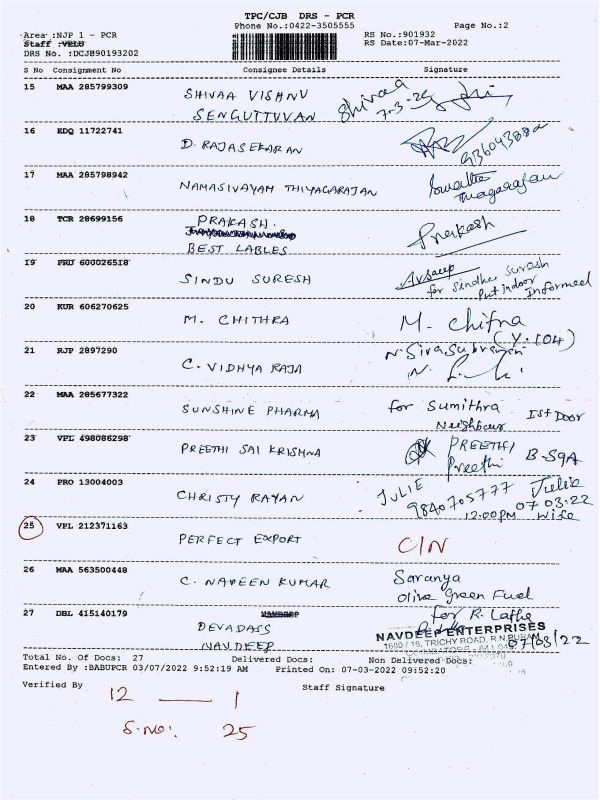 TPC/CJB DRS - PCR
Phone No.:0422-3505555 Page No.:2
Area :NJP 1 - PCR RS No.:901932
Staff :VELU RS Date:07-Mar-2022
DRS No. :DCJB90193202
S No Consignment No Consignee Details Signature
15 MAA 285799309 SHIVAA VISHNU Shivaa
SENGUTTUVAN 7-3-22
16 EDQ 11722741
D. RAJASEKARAN
17 MAA 285798942
NAMASIVAYAM THIYAGARAJAN Thiagarajan
18 TCR 28699156 PRAKASH. Prakash
BEST LABLES
19 PRU 600026518
SINDU SURESH for Sindhu Suresh
Put indoor Informed
20 KUR 606270625
M. CHITHRA M. Chitra
(Y.104)
21 RJP 2897290 N. Sivasubramani
C. VIDHYA RAJA
22 MAA 285677322
SUNSHINE PHARMA for Sumithra Ist Door
Neighbour
23 VPL 498086298 PREETHI
PREETHI SAI KRISHNA Preethi B-S9A
24 PRO 13004003 JULIE Julie
CHRISTY RAYAN 9840705777 07 03.22
12.00PM Wife
25 VPL 212371163
PERFECT EXPORT C/N
26 MAA 563500448 Saranya
C. NAVEEN KUMAR Olive Green Fuel
27 DBL 415140179 for R. Latha
DEVADASS NAVDEEP ENTERPRISES
NAVDEEP TRICHY ROAD, 07/03/22
Total No. Of Docs: 27 Delivered Docs: Non Delivered Docs:
Entered By :BABUPCR 03/07/2022 9:52:19 AM Printed On: 07-03-2022 09:52:20
Verified By Staff Signature
12 — 1
S.No: 25